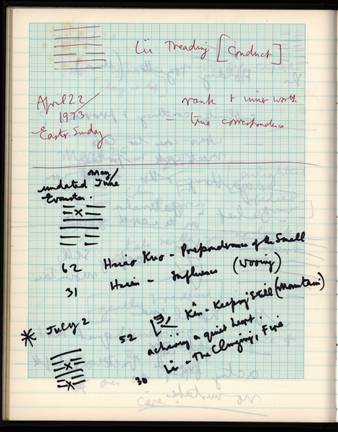 Lü Treading [Conduct]
April 22
1973
Easter Sunday
rank + inner worth
true correspondence
May/
undated June
Evanston.
62 Hsiao Kuo - Preponderance of the Small
31 Hsien - Influence (Wooing)
July 2
52 Kên - Keeping Still (Mountain)
achieving - quiet heart.
30 Li - The Clinging, Fire